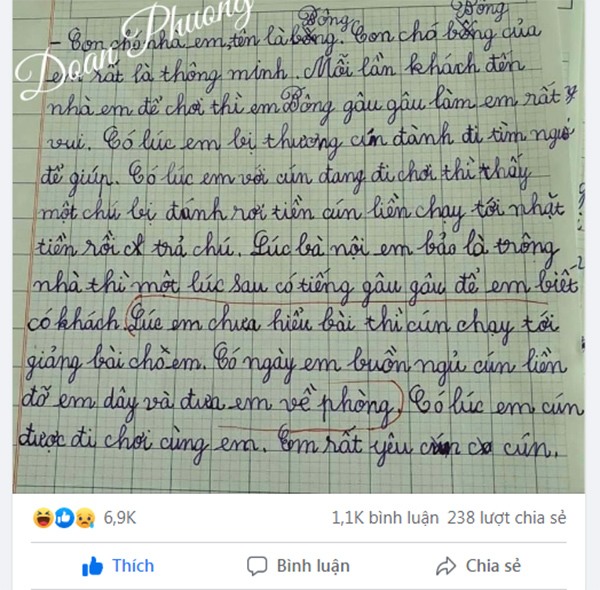 Doan Phuong
Bông Bông
- Con chó nhà em tên là bông. Con chó bông của
em rất là thông minh. Mỗi lần khách đến
nhà em để chơi thì em Bông gâu gâu làm em rất
vui. Có lúc em bị thương cún đành đi tìm người
để giúp. Có lúc em với cún đang đi chơi thì thấy
một chú bị đánh rơi tiền cún liền chạy tới nhặt
tiền rồi trả chú. Lúc bà nội em bảo là trông
nhà thì một lúc sau có tiếng gâu gâu để em biết
có khách. Lúc em chưa hiểu bài thì cún chạy tới
giảng bài cho em. Có ngày em buồn ngủ cún liền
đỡ em dậy và đưa em về phòng. Có lúc em cún
được đi chơi cùng em. Em rất yêu cún.
6,9K 1,1K bình luận 238 lượt chia sẻ
Thích Bình luận Chia sẻ